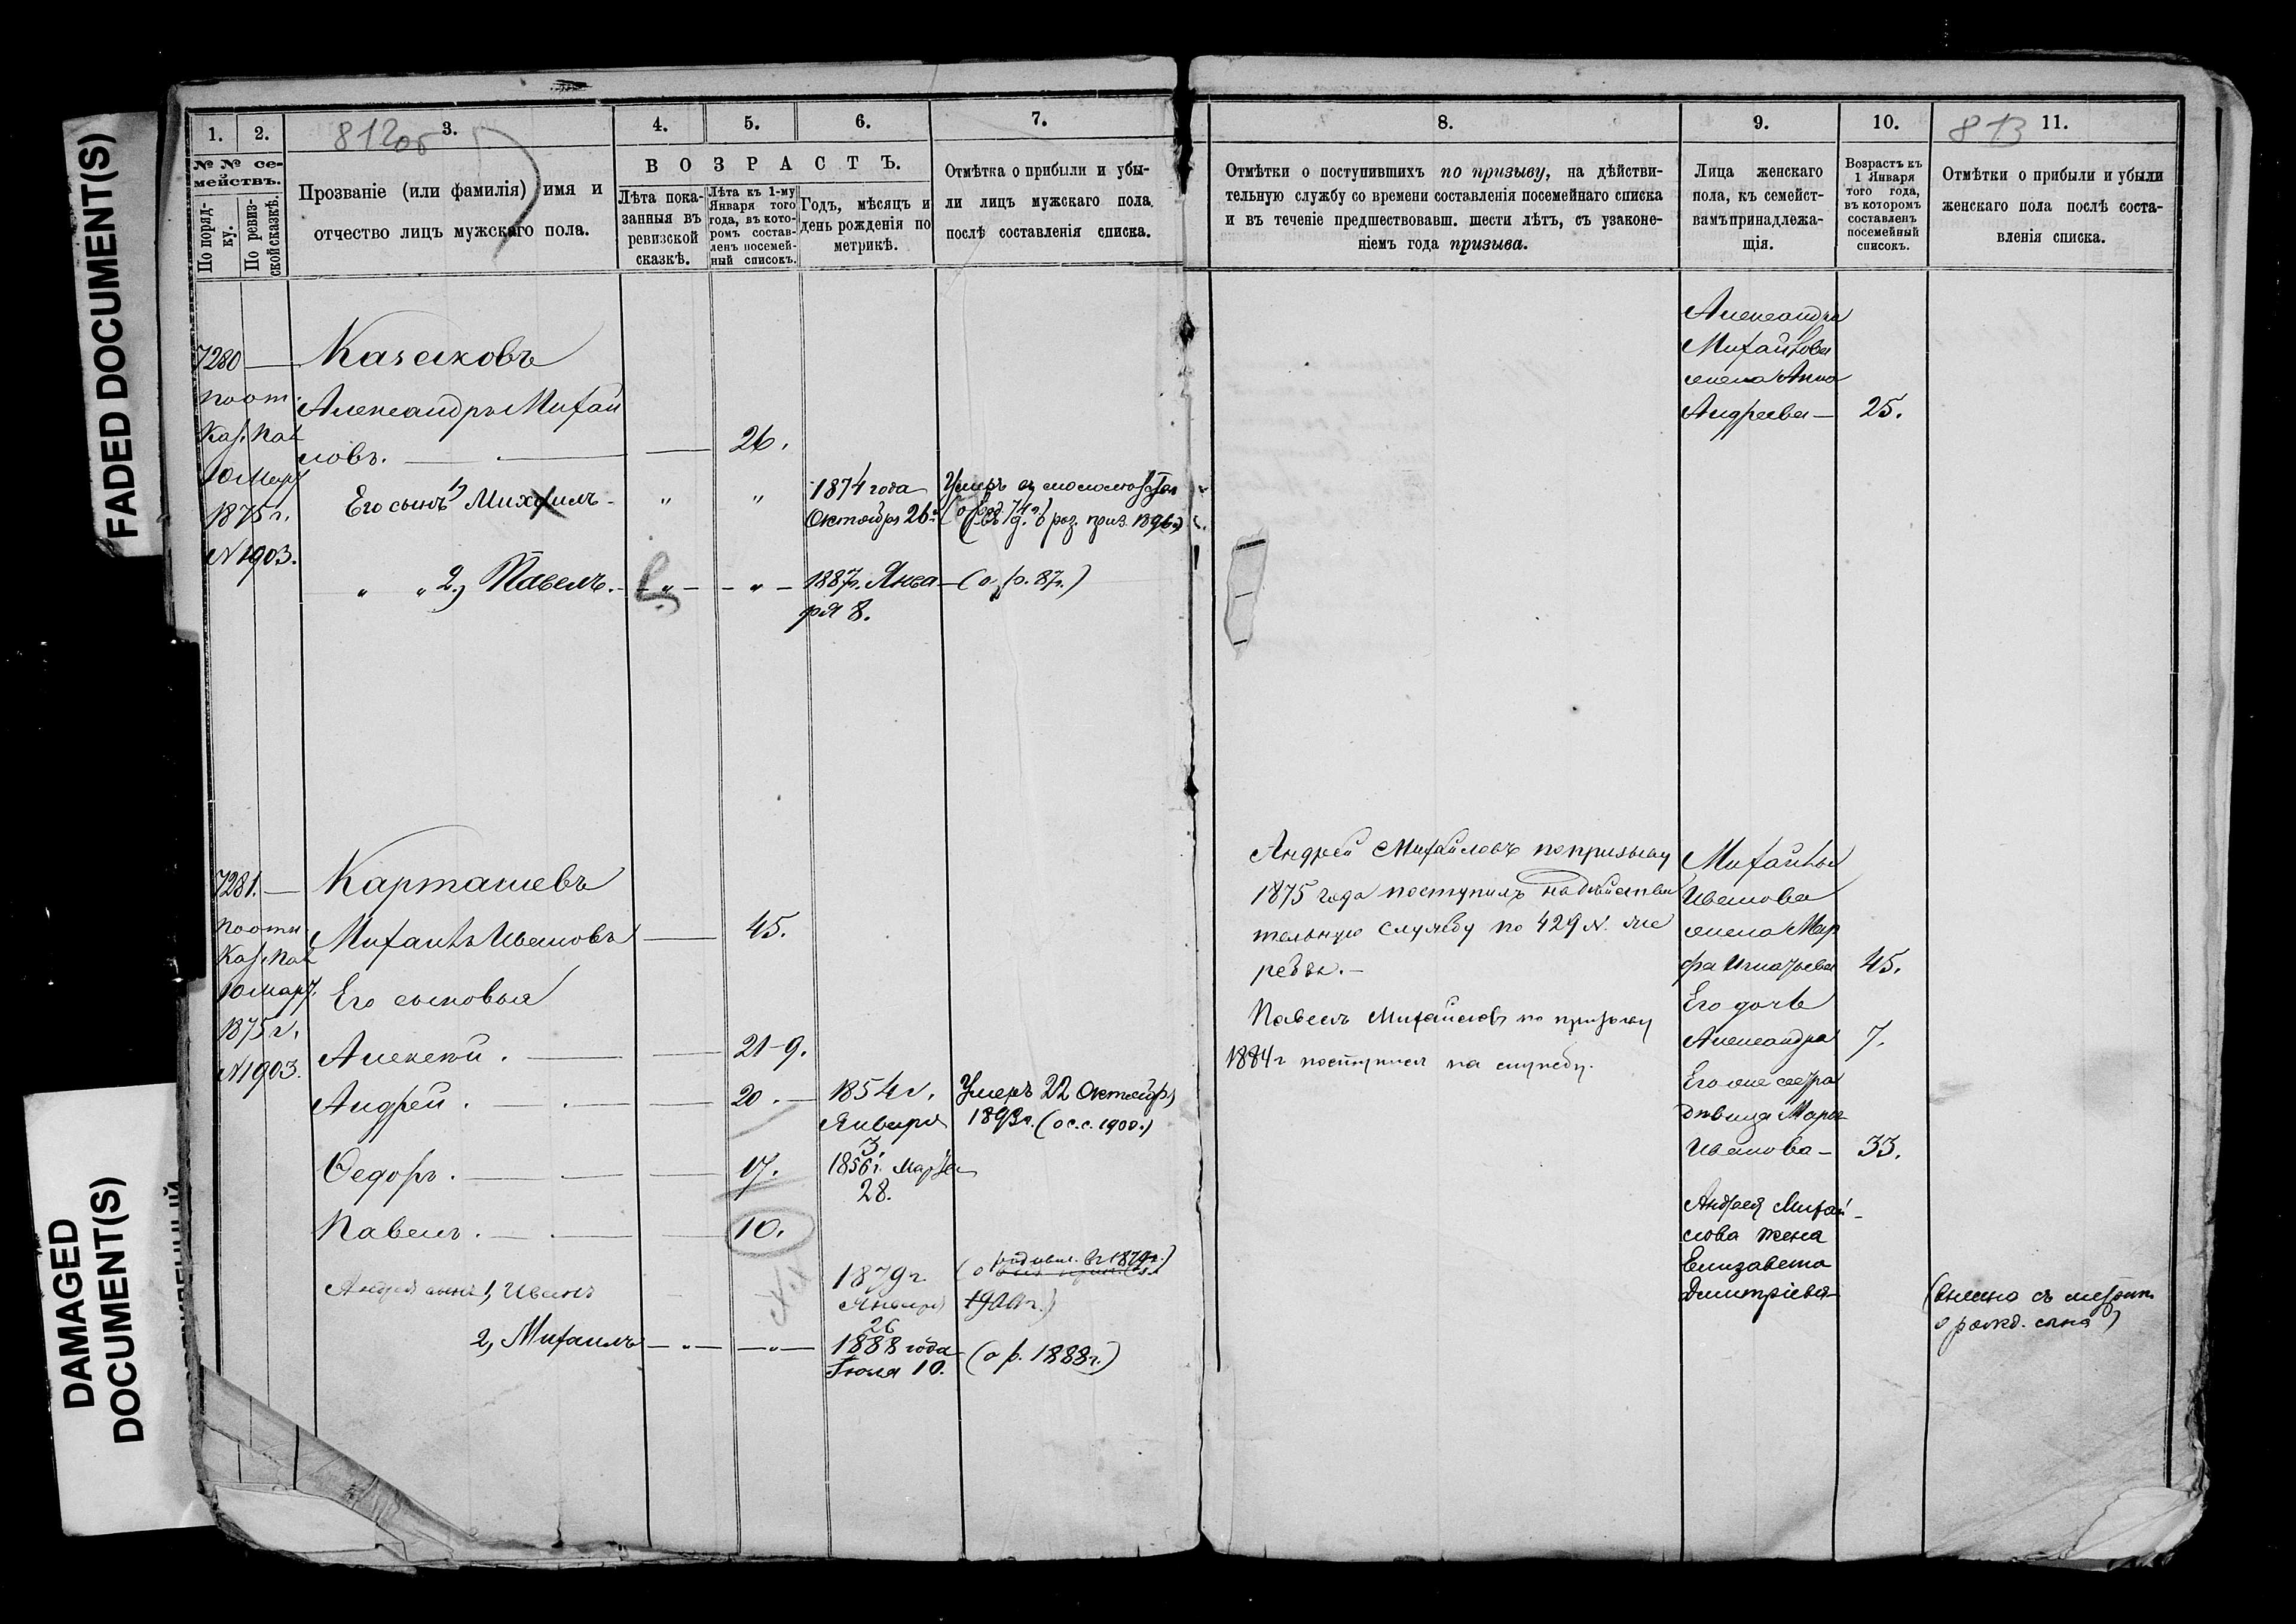 FADED DOCUMENT(S)
DAMAGED
DOCUMENT(S)
1. 2. 3. 4. 5. 6. 7.
812об
№ № се-
мействъ.
По поряд-
ку.
По ревиз-
ской сказкѣ.
Прозваніе (или фамилія) имя и
отчество лицъ мужскаго пола.
ВОЗРАСТЪ.
Лѣта пока-
занныя въ
ревизской
сказкѣ.
Лѣта къ 1-му
Января того
года, въ кото-
ромъ состав-
ленъ посемей-
ный списокъ.
Годъ, мѣсяцъ и
день рожденія по
метрикѣ.
Отмѣтка о прибыли и убы-
ли лицъ мужскаго пола
послѣ составленія списка.
7280 — Казаковъ
по от.
Александръ Михай
Каз. Пал.
ловъ. — 26.
10 Март
1875 г.
№ 1903.
Его сынъ 1) Михаилъ - " " 1874 года
Октября 26.
Умеръ
приз. 1896 г.)
" " 2, Павелъ. - " - - " - 1887 г. Янва - (о р. 87 г.)
ря 8.
7281. — Карташевъ
по отн
Каз. Пал
10 март.
1875 г.
№ 1903.
Михаилъ Ивановъ — 45.
Его сыновья
Алексѣй. — 21-9.
Андрей. — 20. — 1854 г.
Января
3
Умеръ 22 Октября
1893 г. (о с.с. 1900.)
Ѳедоръ. — 17. 1856 г. Марта
28.
Павелъ. — 10.
Андрея сынъ 1, Иванъ 1879 г.
Января
26
2, Михаилъ — " — — " — 1888 года
Іюля 10. (о р. 1888 г.)
8. 9. 10. 11.
813
Отмѣтки о поступившихъ по призыву, на дѣйстви-
тельную службу со времени составленія посемейнаго списка
и въ теченіе предшествовавш. шести лѣтъ, съ узаконе-
ніемъ года призыва.
Лица женскаго
пола, къ семейст-
вамъ принадлежа-
щія.
Возрастъ къ
1 Января
того года,
въ которомъ
составленъ
посемейный
списокъ.
Отмѣтки о прибыли и убыли
женскаго пола послѣ соста-
вленія списка.
Александра
Михайлова
жена Анна
Андреева — 25.
Андрей Михайловъ по призыву
1875 года поступилъ на дѣйстви
тельную службу по 429 №. же
ребья. —
Павелъ Михайловъ по призыву
1884 г поступилъ на службу.
Михаила
Иванова
жена Мар
фа Игнатьева 45.
Его дочь
Александра 7.
Его же сестра
дѣвица Марья
Иванова — 33.
Андрея Михай-
лова жена
Елизавета
Дмитріева
(внесено съ метрик.
о рожд. сына)